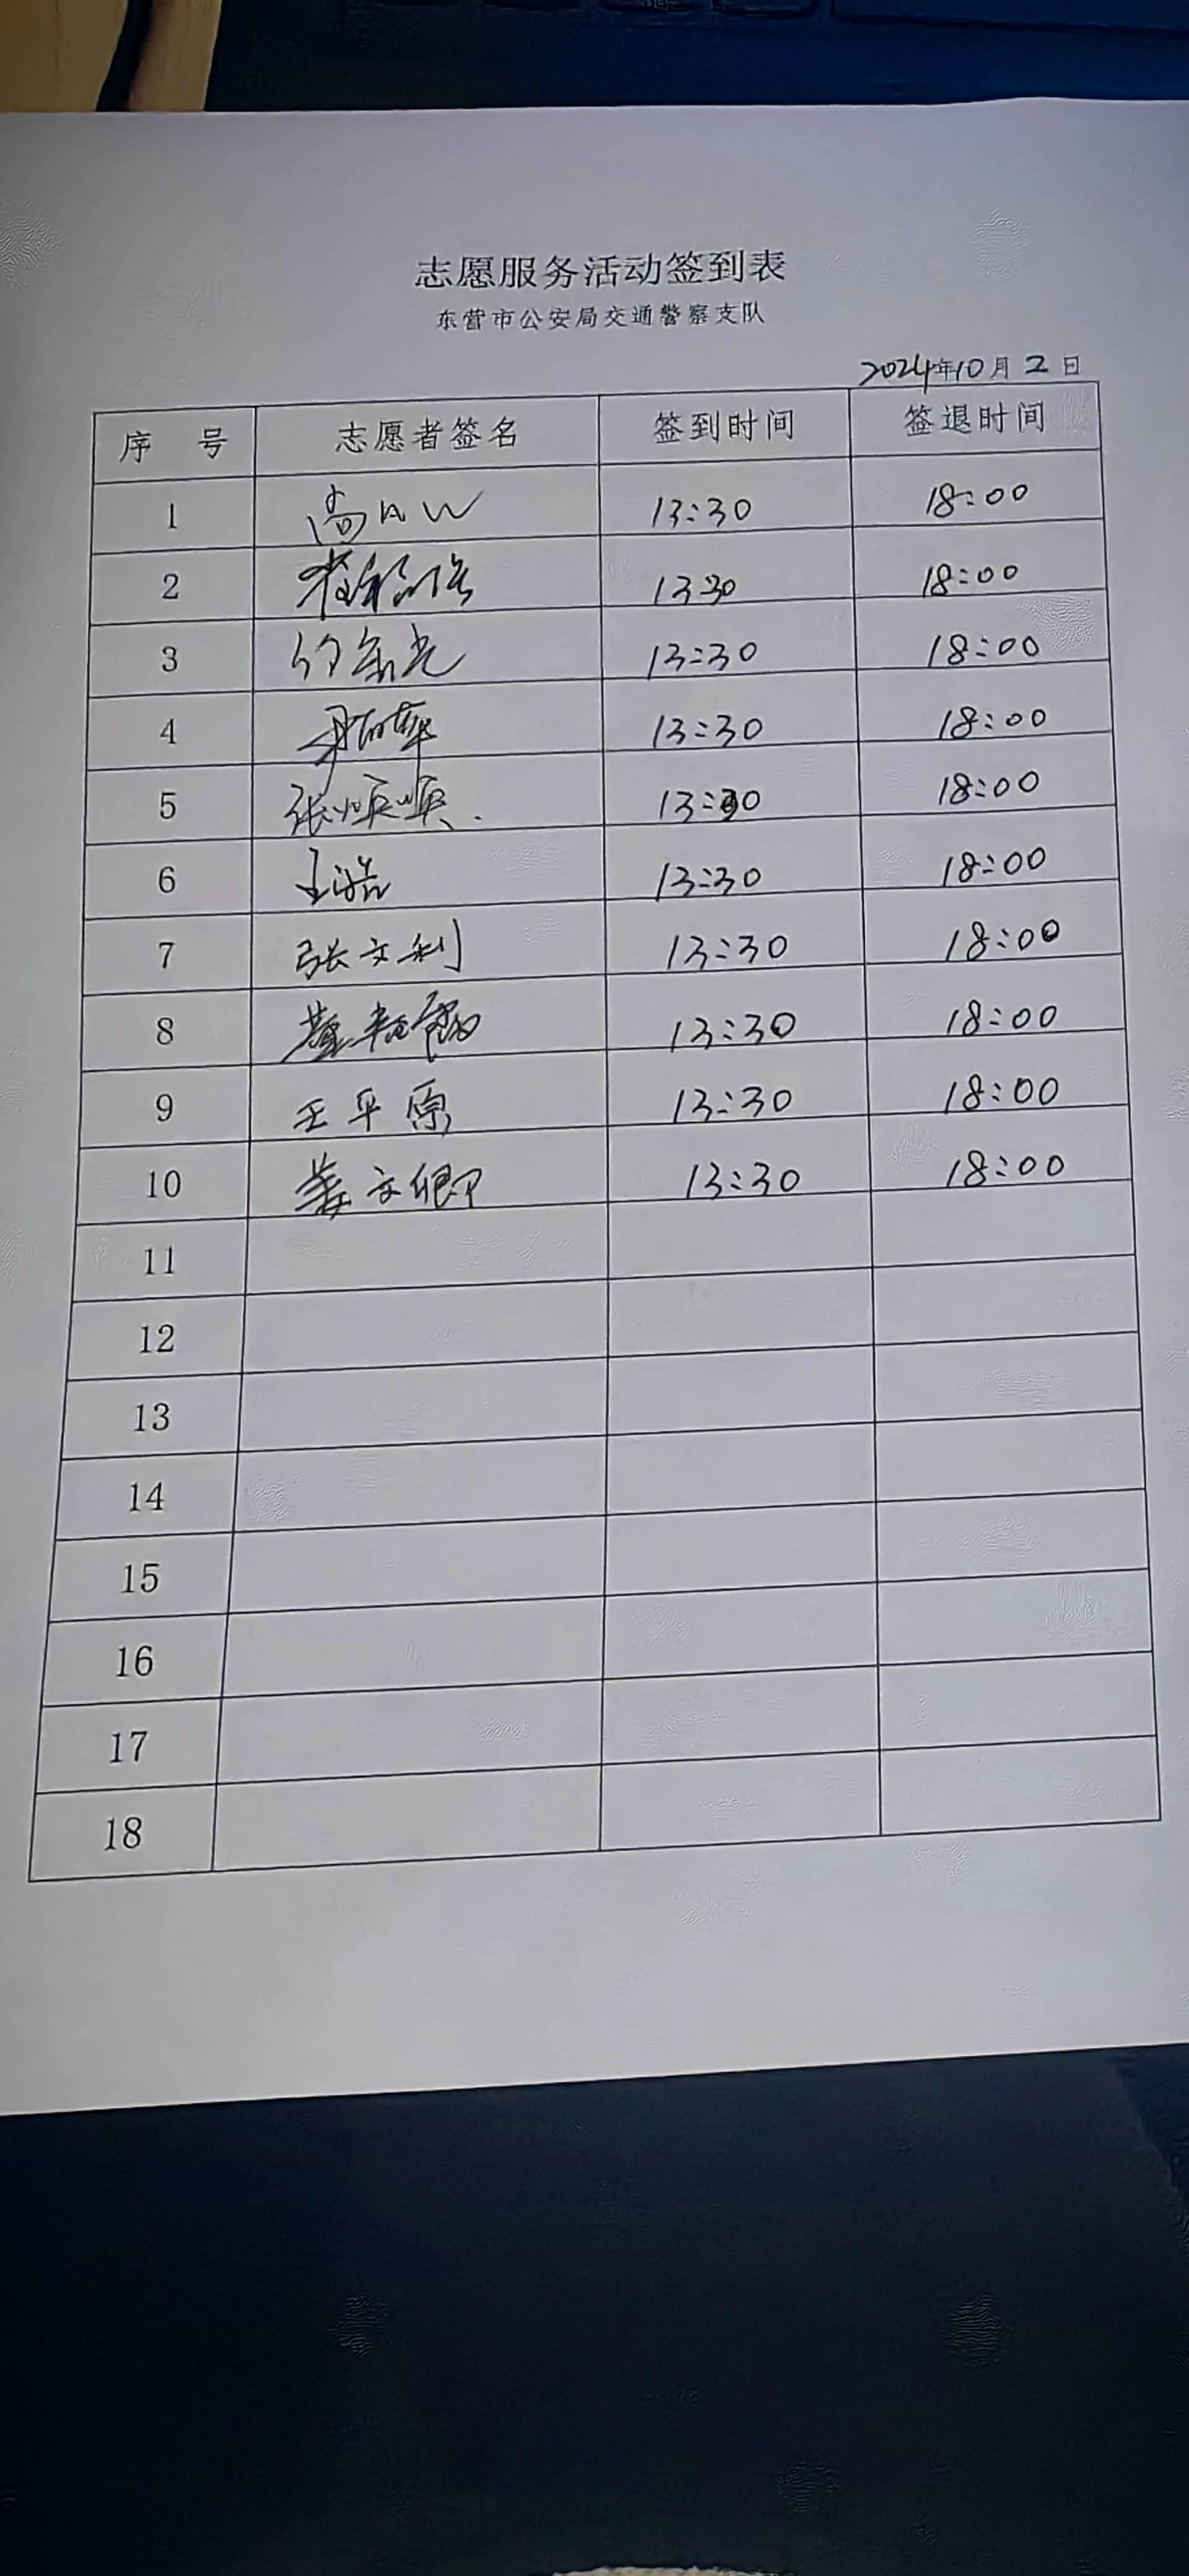 志愿服务活动签到表
东营市公安局交通警察支队
2024年10月2日
序 号 志愿者签名 签到时间 签退时间
1 13:30 18:00
2 13:30 18:00
3 13:30 18:00
4 13:30 18:00
5 张顺顺 13:30 18:00
6 王浩 13:30 18:00
7 张文利 13:30 18:00
8 13:30 18:00
9 王平原 13:30 18:00
10 姜文卿 13:30 18:00
11
12
13
14
15
16
17
18